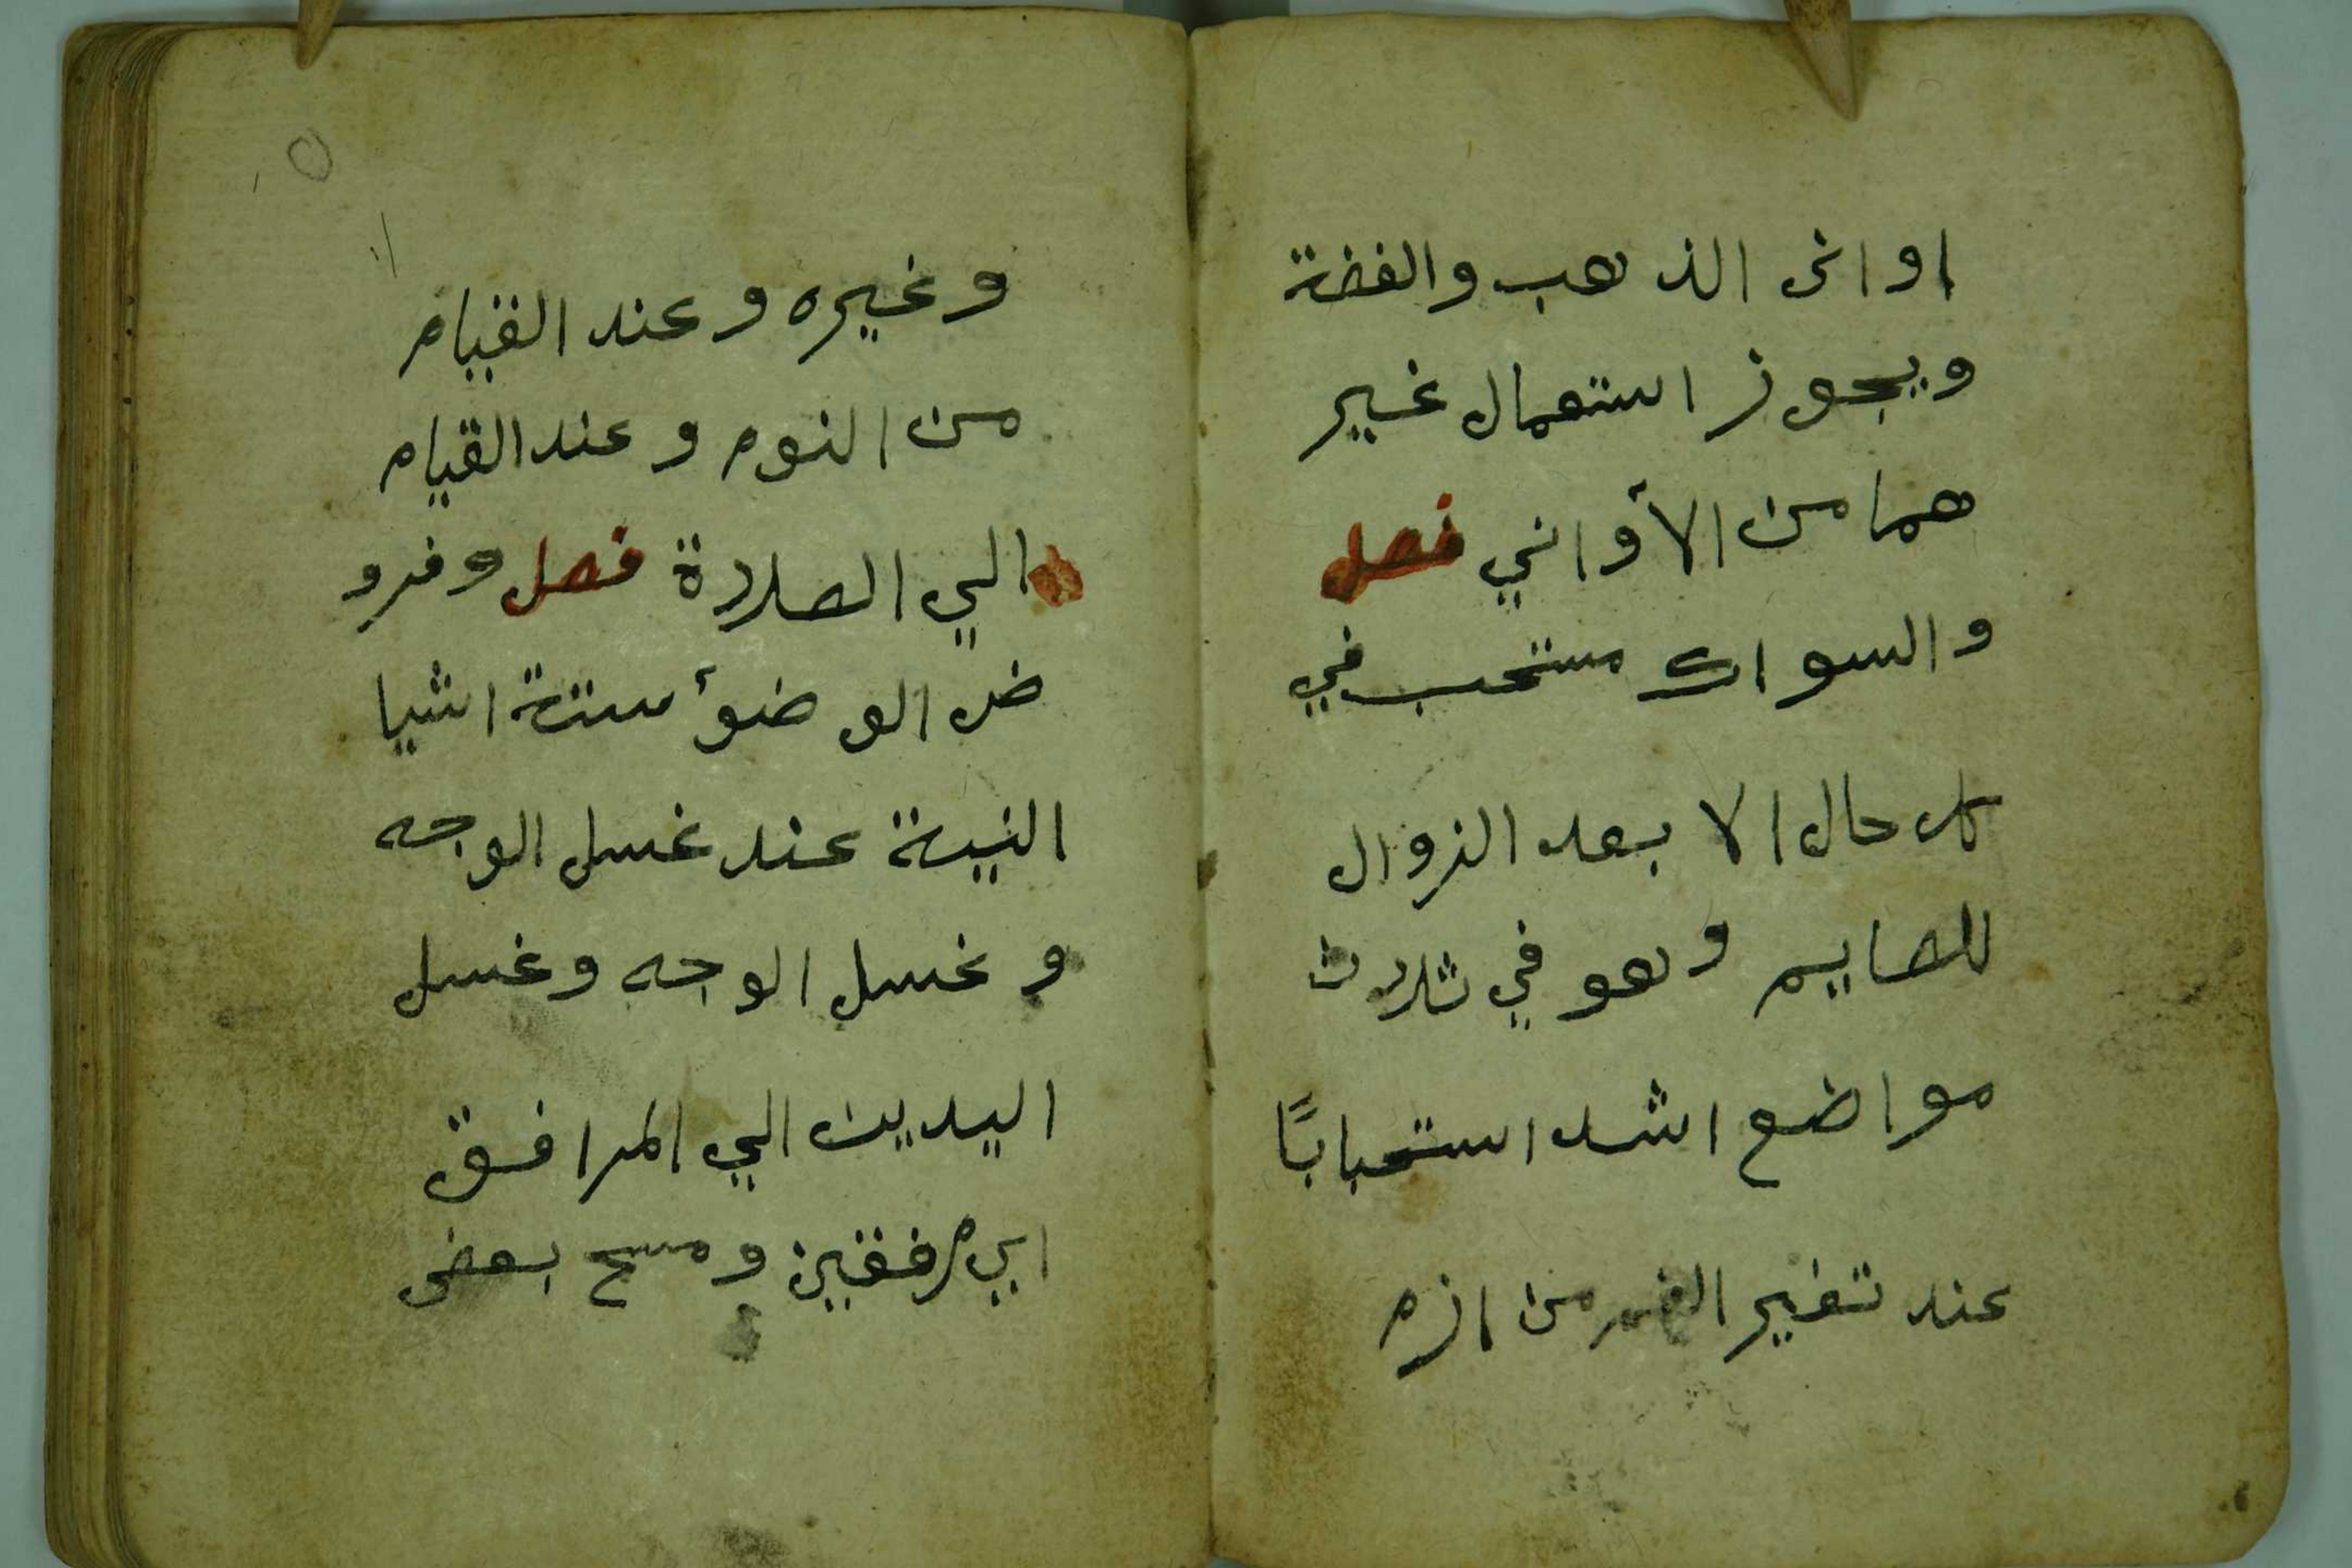 اوانى الذهب والفضة
ويجوز استعمال غير
هما من الأواني فصل
والسواك مستحب في
كل حال الا بعد الزوال
للصايم وهو في ثلاث
مواضع اشد استحبابًا
عند تغير الفم من ازم
وغيره وعند القيام
من النوم وعند القيام
الي الصلاة فصل وفرو
ض الوضوأ ستة اشيا
النية عند غسل الوجه
وغسل الوجه وغسل
اليدين الي المرافق
اي مرفقين ومسح بعض